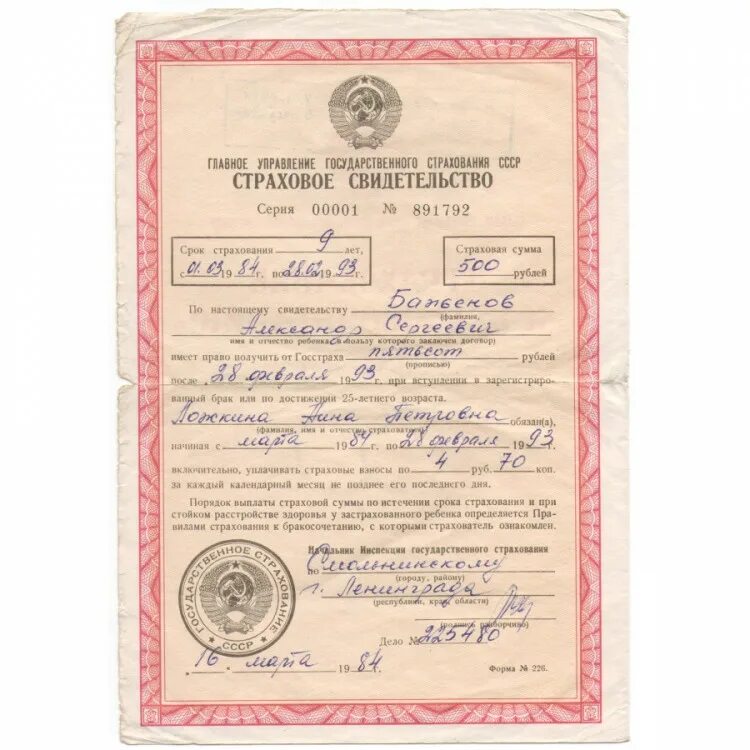 ГЛАВНОЕ УПРАВЛЕНИЕ ГОСУДАРСТВЕННОГО СТРАХОВАНИЯ СССР
СТРАХОВОЕ СВИДЕТЕЛЬСТВО
Серия 00001 № 891792
Срок страхования 9 лет,
с 01.03 1984 г. по 28.02 1993 г.
Страховая сумма
500 рублей
По настоящему свидетельству Баженов
(фамилия,
Александр Сергеевич
имя и отчество ребенка, в пользу которого заключен договор)
имеет право получить от Госстраха пятьсот рублей
(прописью)
после 28 февраля 1993 г. при вступлении в зарегистриро-
ванный брак или по достижении 25-летнего возраста.
Ложкина Нина Петровна обязан(а),
(фамилия, имя и отчество страхователя)
начиная с марта 1984 г. по 28 февраля 1993 г.
включительно, уплачивать страховые взносы по 4 руб. 70 коп.
за каждый календарный месяц не позднее его последнего дня.
Порядок выплаты страховой суммы по истечении срока страхования и при
стойком расстройстве здоровья у застрахованного ребенка определяется Пра-
вилами страхования к бракосочетанию, с которыми страхователь ознакомлен.
Начальник Инспекции государственного страхования
по Смольнинскому
(городу, району)
г. Ленинграда
(республики, края, области)
(подпись разборчиво)
Дело № 225480
ГОСУДАРСТВЕННОЕ СТРАХОВАНИЕ
СССР
"16" марта 1984 г.
Форма № 226.